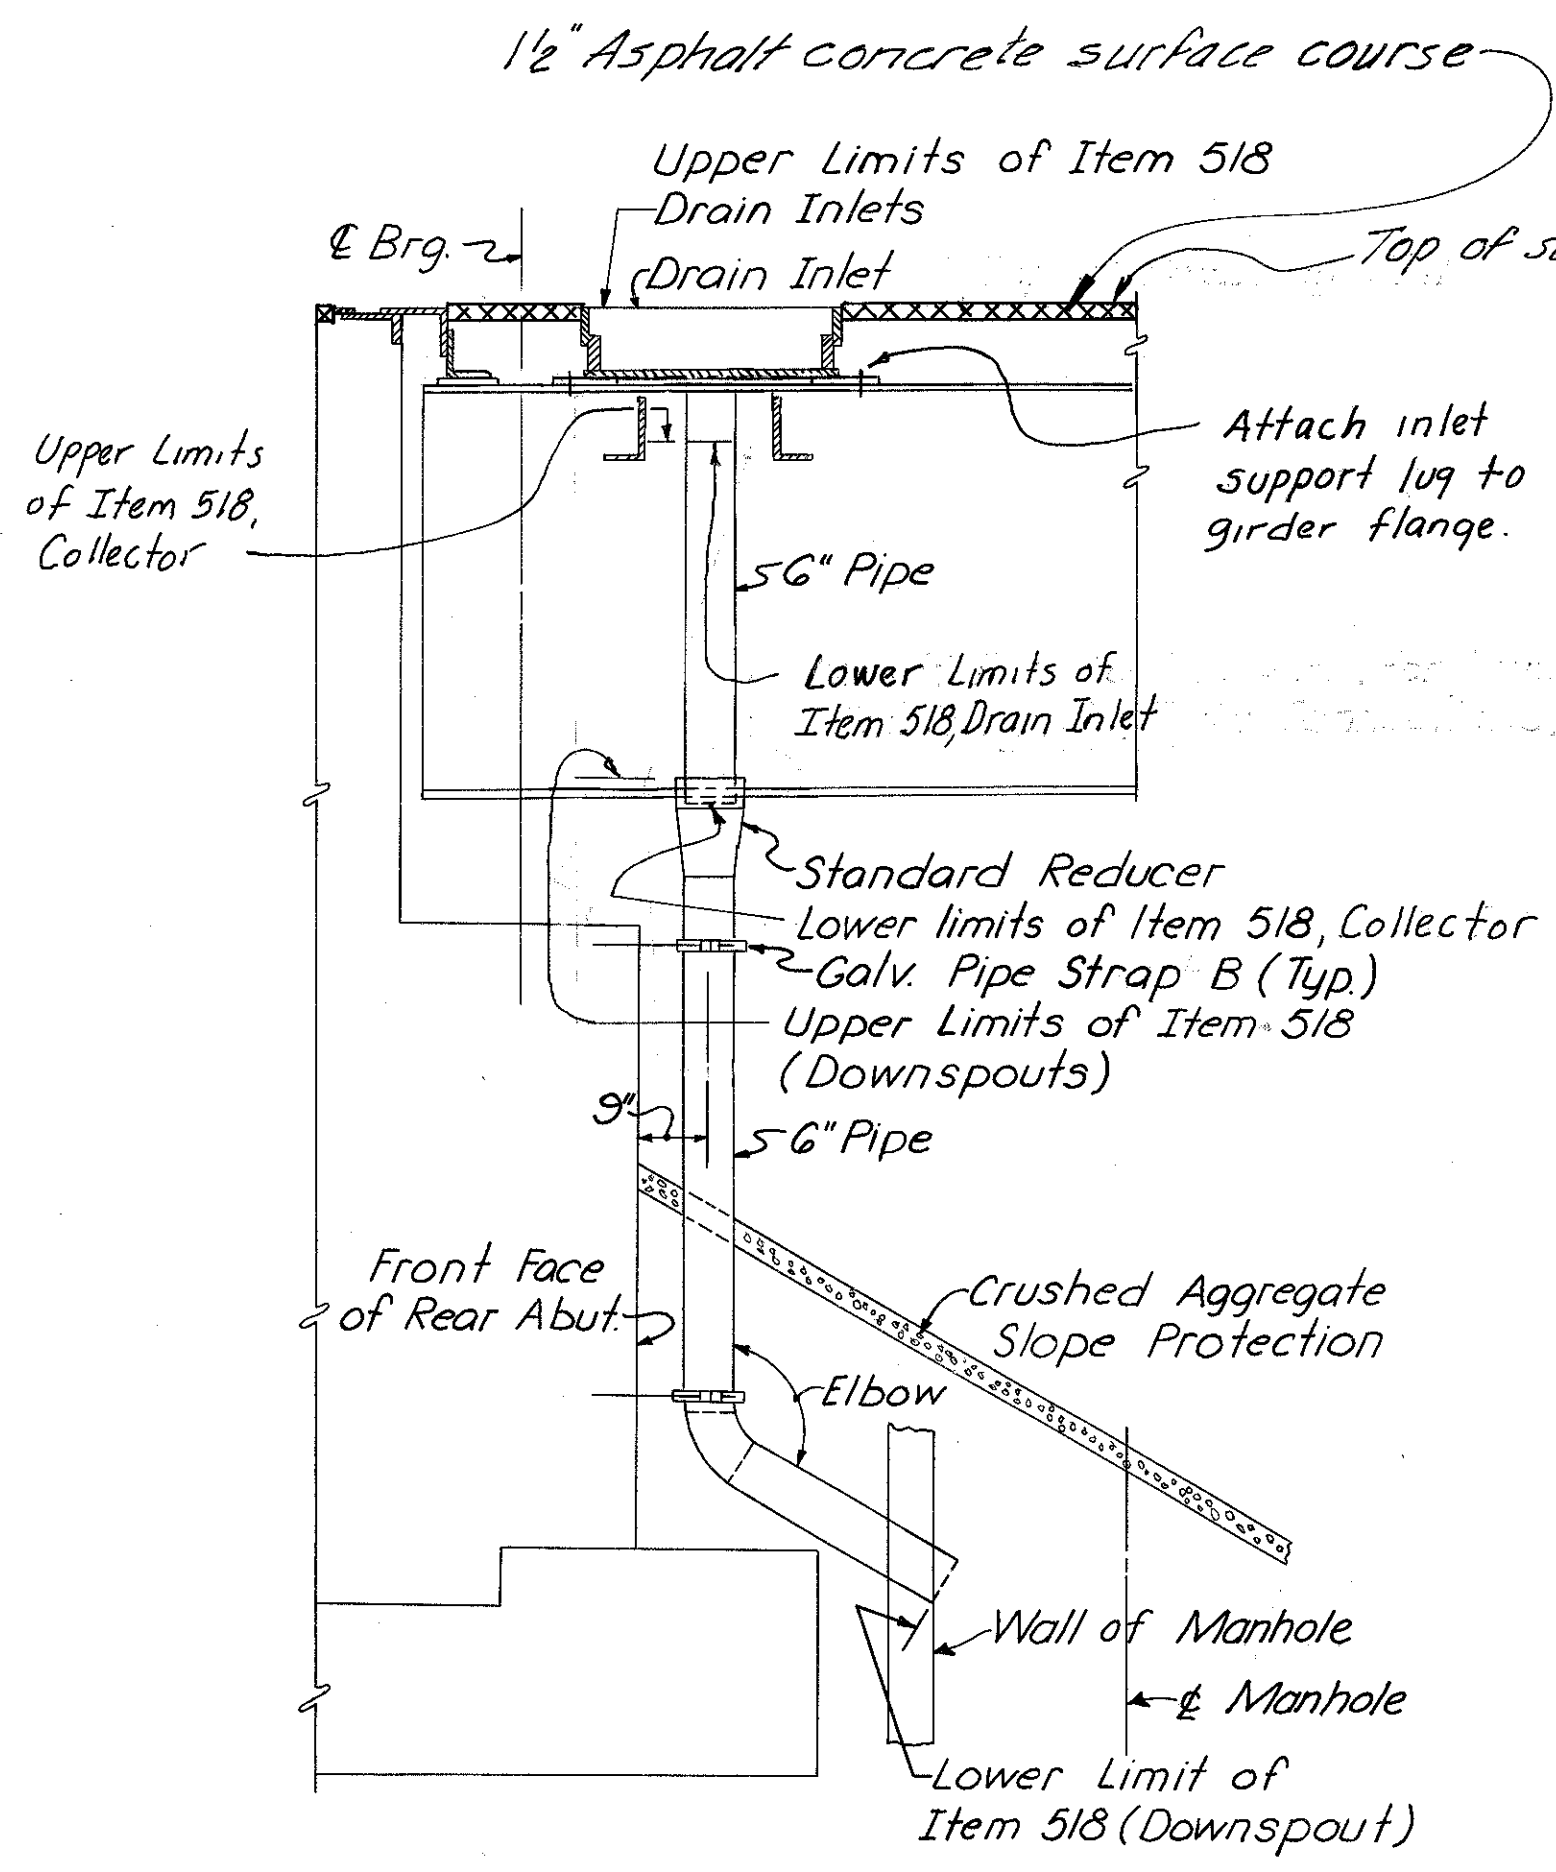 1½" Asphalt concrete surface course
Upper Limits of Item 518
Drain Inlets
℄ Brg.
Drain Inlet
Top of
Upper Limits
of Item 518,
Collector
Attach inlet
support lug to
girder flange.
6" Pipe
Lower Limits of
Item 518, Drain Inlet
Standard Reducer
Lower limits of Item 518, Collector
Galv. Pipe Strap B (Typ.)
Upper Limits of Item 518
(Downspouts)
9"
6" Pipe
Front Face
of Rear Abut.
Crushed Aggregate
Slope Protection
Elbow
Wall of Manhole
℄ Manhole
Lower Limit of
Item 518 (Downspout)